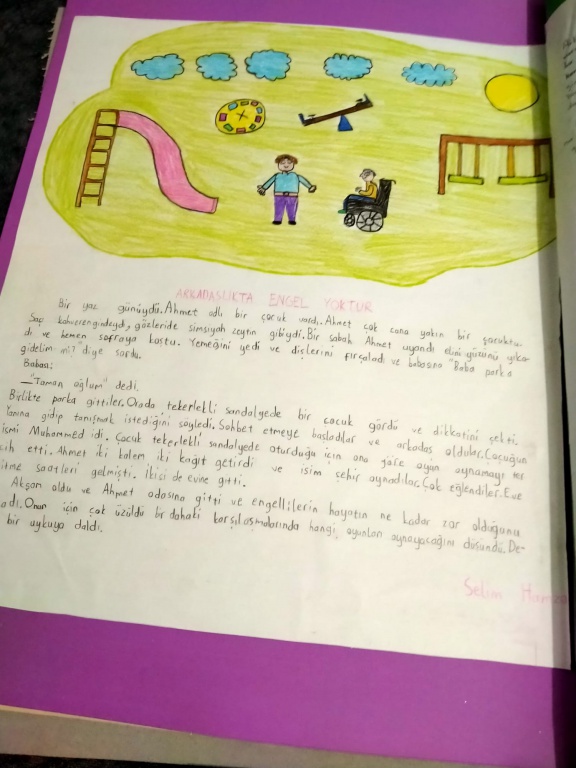 ARKADAŞLIKTA ENGEL YOKTUR
Bir yaz günüydü. Ahmet adlı bir çocuk vardı. Ahmet çok cana yakın bir çocuktu.
Saçı kahverengindeydi, gözleride simsiyah zeytin gibiydi. Bir sabah Ahmet uyandı elini yüzünü yıka-
dı ve hemen sofraya koştu. Yemeğini yedi ve dişlerini fırçaladı ve babasına "Baba parka
gidelim mi?" diye sordu.
Babası;
—"Tamam oğlum" dedi.
Birlikte parka gittiler. Orada tekerlekli sandalyede bir çocuk gördü ve dikkatini çekti.
Yanına gidip tanışmak istediğini söyledi. Sohbet etmeye başladılar ve arkadaş oldular. Çocuğun
ismi Muhammed idi. Çocuk tekerlekli sandalyede oturduğu için ona göre oyun oynamayı ter
cih etti. Ahmet iki kalem iki kağıt getirdi ve isim şehir oynadılar. Çok eğlendiler. Eve
itme saatleri gelmişti. İkisi de evine gitti.
Akşam oldu ve Ahmet odasına gitti ve engellilerin hayatın ne kadar zor olduğunu
adı. Onun için çok üzüldü bir dahaki karşılaşmalarında hangi oyunları oynayacağını düşündü. De-
bir uykuya daldı.
Selim